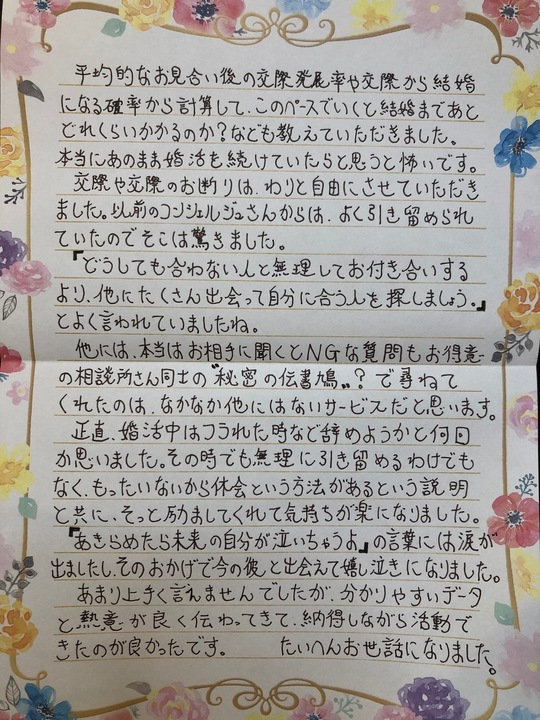 平均的なお見合い後の交際発展率や交際から結婚
になる確率から計算して、このペースでいくと結婚まであと
どれくらいかかるのか?なども教えていただきました。
本当にあのまま婚活を続けていたらと思うと怖いです。
交際や交際のお断りは、わりと自由にさせていただき
ました。以前のコンシェルジュさんからは、よく引き留められ
ていたのでそこは驚きました。
『どうしても合わない人と無理してお付き合いする
より、他にたくさん出会って自分に合う人を探しましょう。』
とよく言われていましたね。
他には、本当はお相手に聞くとNGな質問もお得意
の相談所さん同士の〝秘密の伝書鳩〟?で尋ねて
くれたのは、なかなか他にはないサービスだと思います。
正直、婚活中はフラれた時など辞めようかと何回
か思いました。その時でも無理に引き留めるわけでも
なく、もったいないから休会という方法があるという説明
と共に、そっと励ましてくれて気持ちが楽になりました。
『あきらめたら未来の自分が泣いちゃうよ』の言葉には涙が
出ましたし、そのおかげで今の彼と出会えて嬉し泣きになりました。
あまり上手く言えませんでしたが、分かりやすいデータ
と熱意が良く伝わってきて、納得しながら活動で
きたのが良かったです。 たいへんお世話になりました。